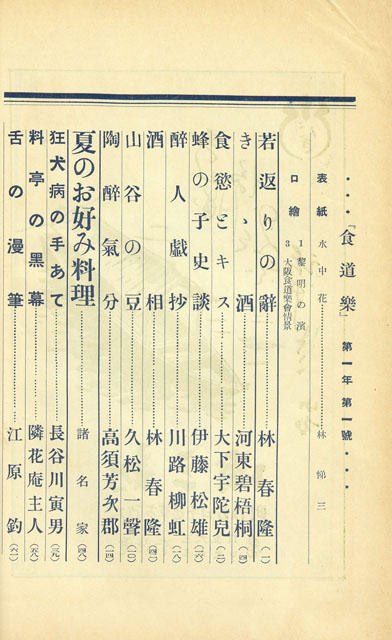 ・・・・『食道樂』第一年第一號・・・・
表紙 水中花…………林悌三
口繪
1 黎明の濱
3 大阪食道樂會情景
若返りの辭…………林春隆(一)
きゝ酒…………河東碧梧桐(四)
食慾とキス…………大下宇陀兒(二)
蜂の子史談…………伊藤松雄(一六)
醉人戯抄…………川路柳虹(一八)
酒相…………林春隆(四)
山谷の豆…………久松一聲(一〇)
陶醉氣分…………高須芳次郎(一四)
夏のお好み料理…………諸名家(四八)
狂犬病の手あて…………長谷川寅男(三九)
料亭の黑幕…………隣花庵主人(五八)
舌の漫筆…………江原鈞(六一)